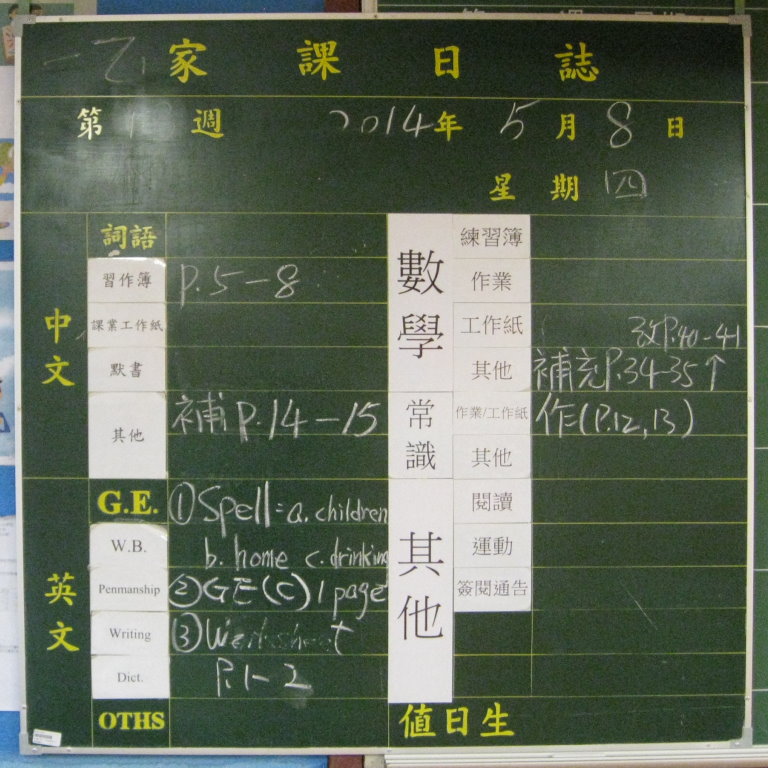 一乙 家課日誌
第 週 2014年 5月 8日
星期 四
中文
詞語
習作簿 P.5-8
課業工作紙
默書
其他 補 P.14-15
英文
G.E. ①Spell: a. children
W.B. b. home c. drinking
Penmanship ②GE(C) 1 page
Writing ③Worksheet
Dict. P.1-2
OTHS
數學
練習簿
作業
工作紙 改P.40-41
其他 補充P.34-35↑
常識
作業/工作紙 作(P.12,13)
其他
其他
閱讀
運動
簽閱通告
值日生